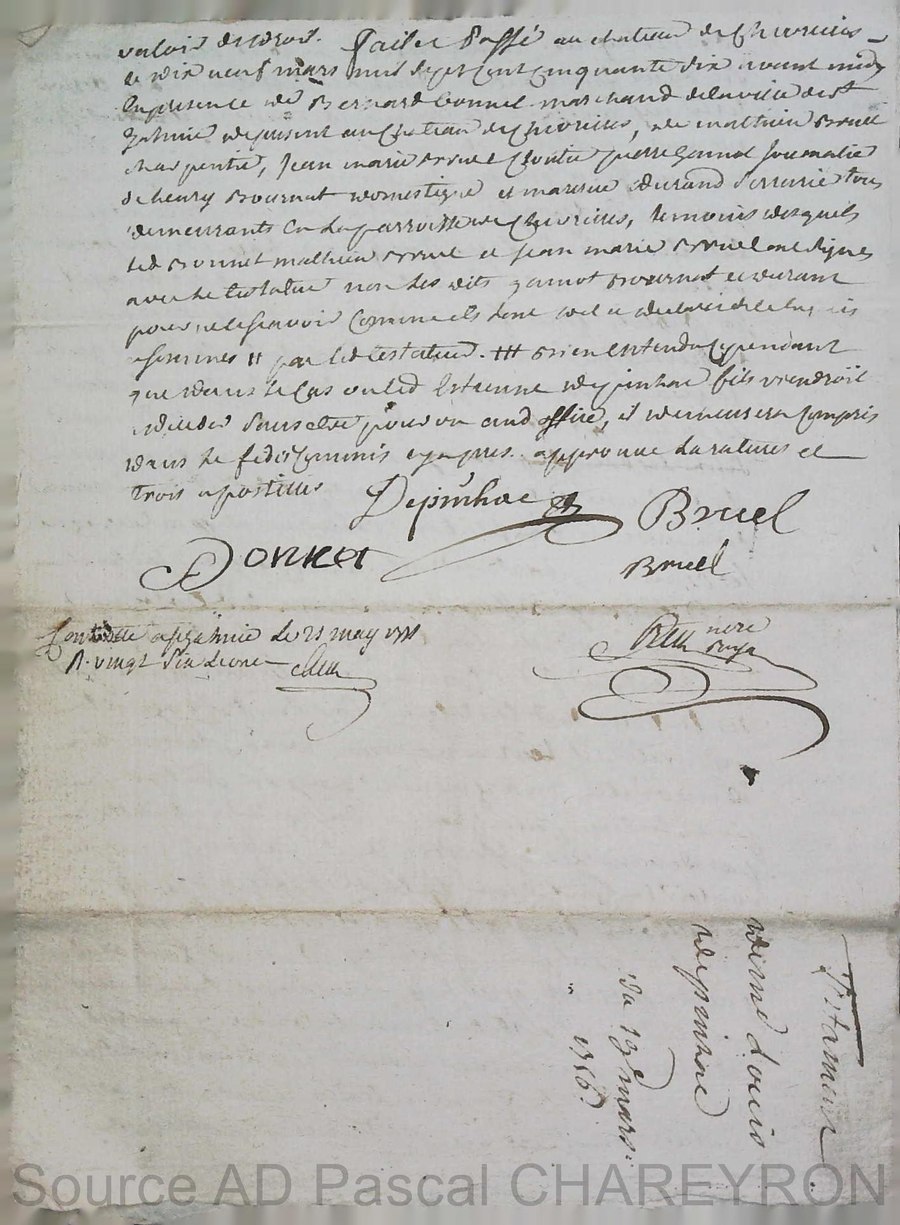 valoir de droit. Fait et passé au chateau de Chevrieres
le dix neuf mars mil sept cent cinquante six avant midy
en presence de Bernard Bonnet marchand de la ville de St
Galmier de present au chateau de Chevrieres, de mathieu Bruel
charpentier, Jean marie Bruel pierre Gannot Journalier
de henry Bournat domestique et durand serrurier tous
demeurants en la parroisse de Chevrieres, temoins desquels
led Bonnet mathieu Bruel et Jean marie Bruel ont signé
avec le testateur non les dits gannot Bournat et durand
pour ne le scavoir comme ils ont de ce enquis
et sommes // par led testateur. /// Bien entendu cependant
que dans le cas ou led Estienne depinhac fils viendroit
a deceder sans etre pourvu aud office, il demeurera compris
dans le fideicommis cy apres. approuvé la rature et
trois apostilles
Depinhac
Bruel
Bonnet
Bruel
Controllé a st galmier le 21 may
R. vingt six livres
Testament
de me Louis
depinhac
du 19e mars
1756.
Source AD Pascal CHAREYRON